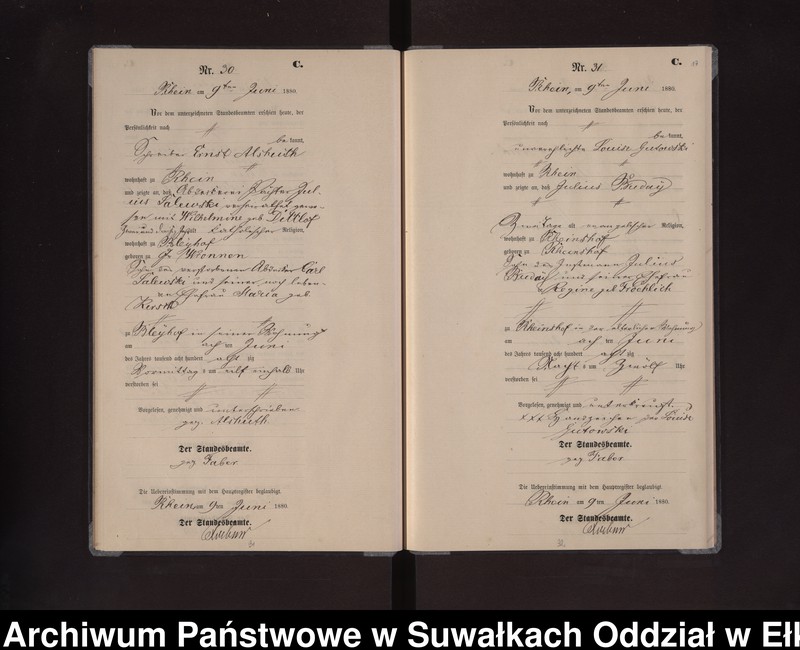 C.
Nr. 30
Rhein am 9ten Juni 1880.
Vor dem unterzeichneten Standesbeamten erschien heute, der
Persönlichkeit nach
bekannt,
Schreiber Ernst Alsleuth
wohnhaft zu Rhein
und zeigte an, daß Abdeckerei Pächter Jul-
ius Salewski verheirathet gewe-
sen mit Wilhelmine geb. Dittlof
katholischer Religion,
wohnhaft zu Bleyhof
geboren zu Gr Wronnen
Sohn des verstorbenen Abdecker Carl
Salewski und seiner noch leben-
den Ehefrau Maria geb.
zu Bleyhof in seiner Wohnung
am acht ten Juni
des Jahres tausend acht hundert acht zig
Vormittags um elf einhalb Uhr
verstorben sei
Vorgelesen, genehmigt und unterschrieben
gez. Alsleuth
Der Standesbeamte.
gez Faber
Die Uebereinstimmung mit dem Hauptregister beglaubigt.
Rhein am 9ten Juni 1880
Der Standesbeamte.
C.
Nr. 31
Rhein, am 9ten Juni 1880.
Vor dem unterzeichneten Standesbeamten erschien heute, der
Persönlichkeit nach
bekannt,
unverehelichte Louise Gutowski
wohnhaft zu Rhein
und zeigte an, daß Julius Buday
Tage alt evangelischer Religion,
wohnhaft zu Rheinshof
geboren zu Rheinshof
Sohn des Instmann Julius
Buday und seiner Ehefrau
Regine geb Froehlich
zu Rheinshof in der elterlichen Wohnung
am acht ten Juni
des Jahres tausend acht hundert acht zig
Nachts um Zwölf Uhr
verstorben sei
Vorgelesen, genehmigt und unterkreuzt
xxx Handzeichen der Louise
Gutowski
Der Standesbeamte.
gez Faber
Die Uebereinstimmung mit dem Hauptregister beglaubigt.
Rhein am 9ten Juni 1880.
Der Standesbeamte.
Archiwum Państwowe w Suwałkach Oddział w Ełk